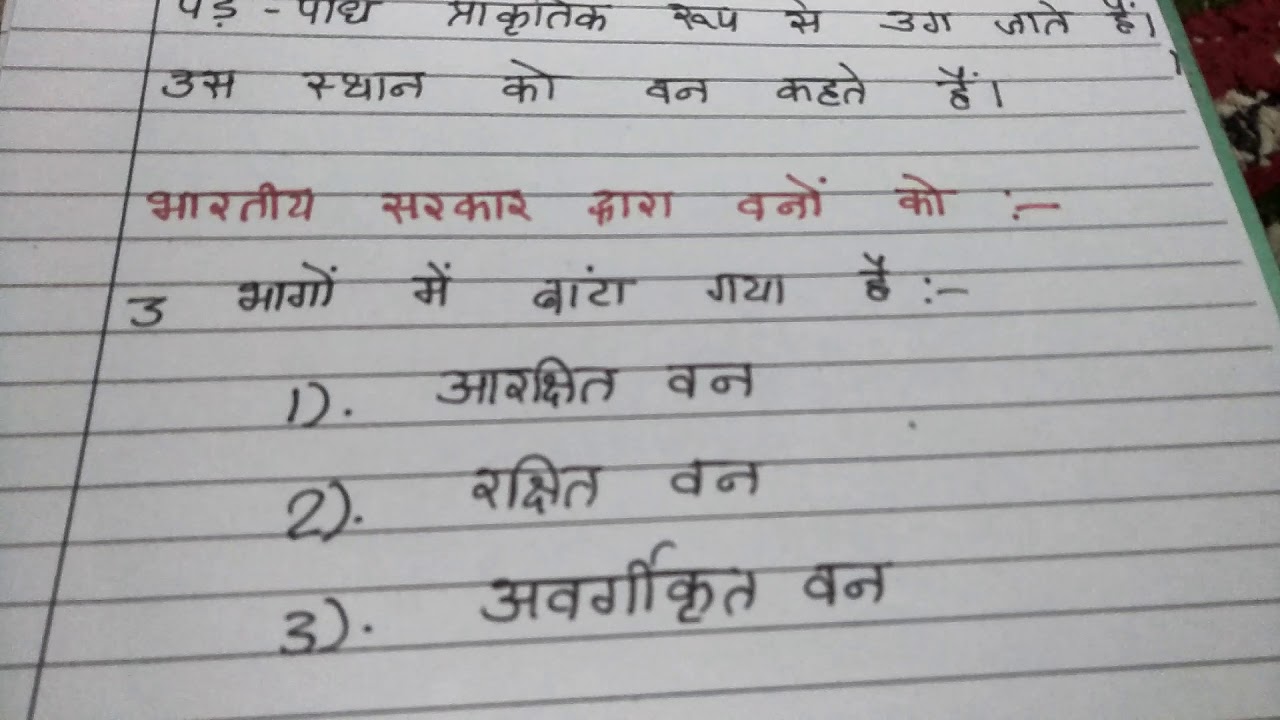 पेड़ - पौधे प्राकृतिक रूप से उग जाते हैं।
उस स्थान को वन कहते हैं।
भारतीय सरकार द्वारा वनों को :-
3 भागों में बांटा गया है :-
1). आरक्षित वन
2). रक्षित वन
3). अवर्गीकृत वन